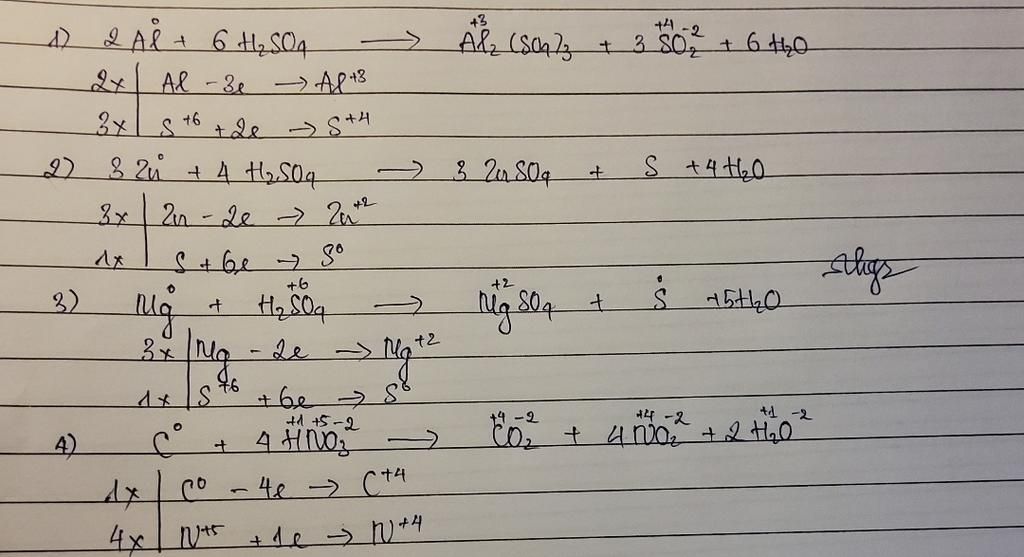 1) 2 Al⁰ + 6 H₂SO₄ → Al₂⁺³(SO₄)₃ + 3 S⁺⁴O₂⁻² + 6 H₂O
2x | Al - 3e → Al⁺³
3x | S⁺⁶ + 2e → S⁺⁴
2) 3 Zn⁰ + 4 H₂SO₄ → 3 ZnSO₄ + S + 4 H₂O
3x | Zn - 2e → Zn⁺²
1x | S + 6e → S⁰
3) Mg⁰ + H₂S⁺⁶O₄ → Mg⁺²SO₄ + S⁰ + 5 H₂O
3x | Mg - 2e → Mg⁺²
1x | S⁺⁶ + 6e → S⁰
4) C⁰ + 4 H⁺¹N⁺⁵O₃⁻² → C⁺⁴O₂⁻² + 4 N⁺⁴O₂⁻² + 2 H₂⁺¹O⁻²
1x | C⁰ - 4e → C⁺⁴
4x | N⁺⁵ + 1e → N⁺⁴